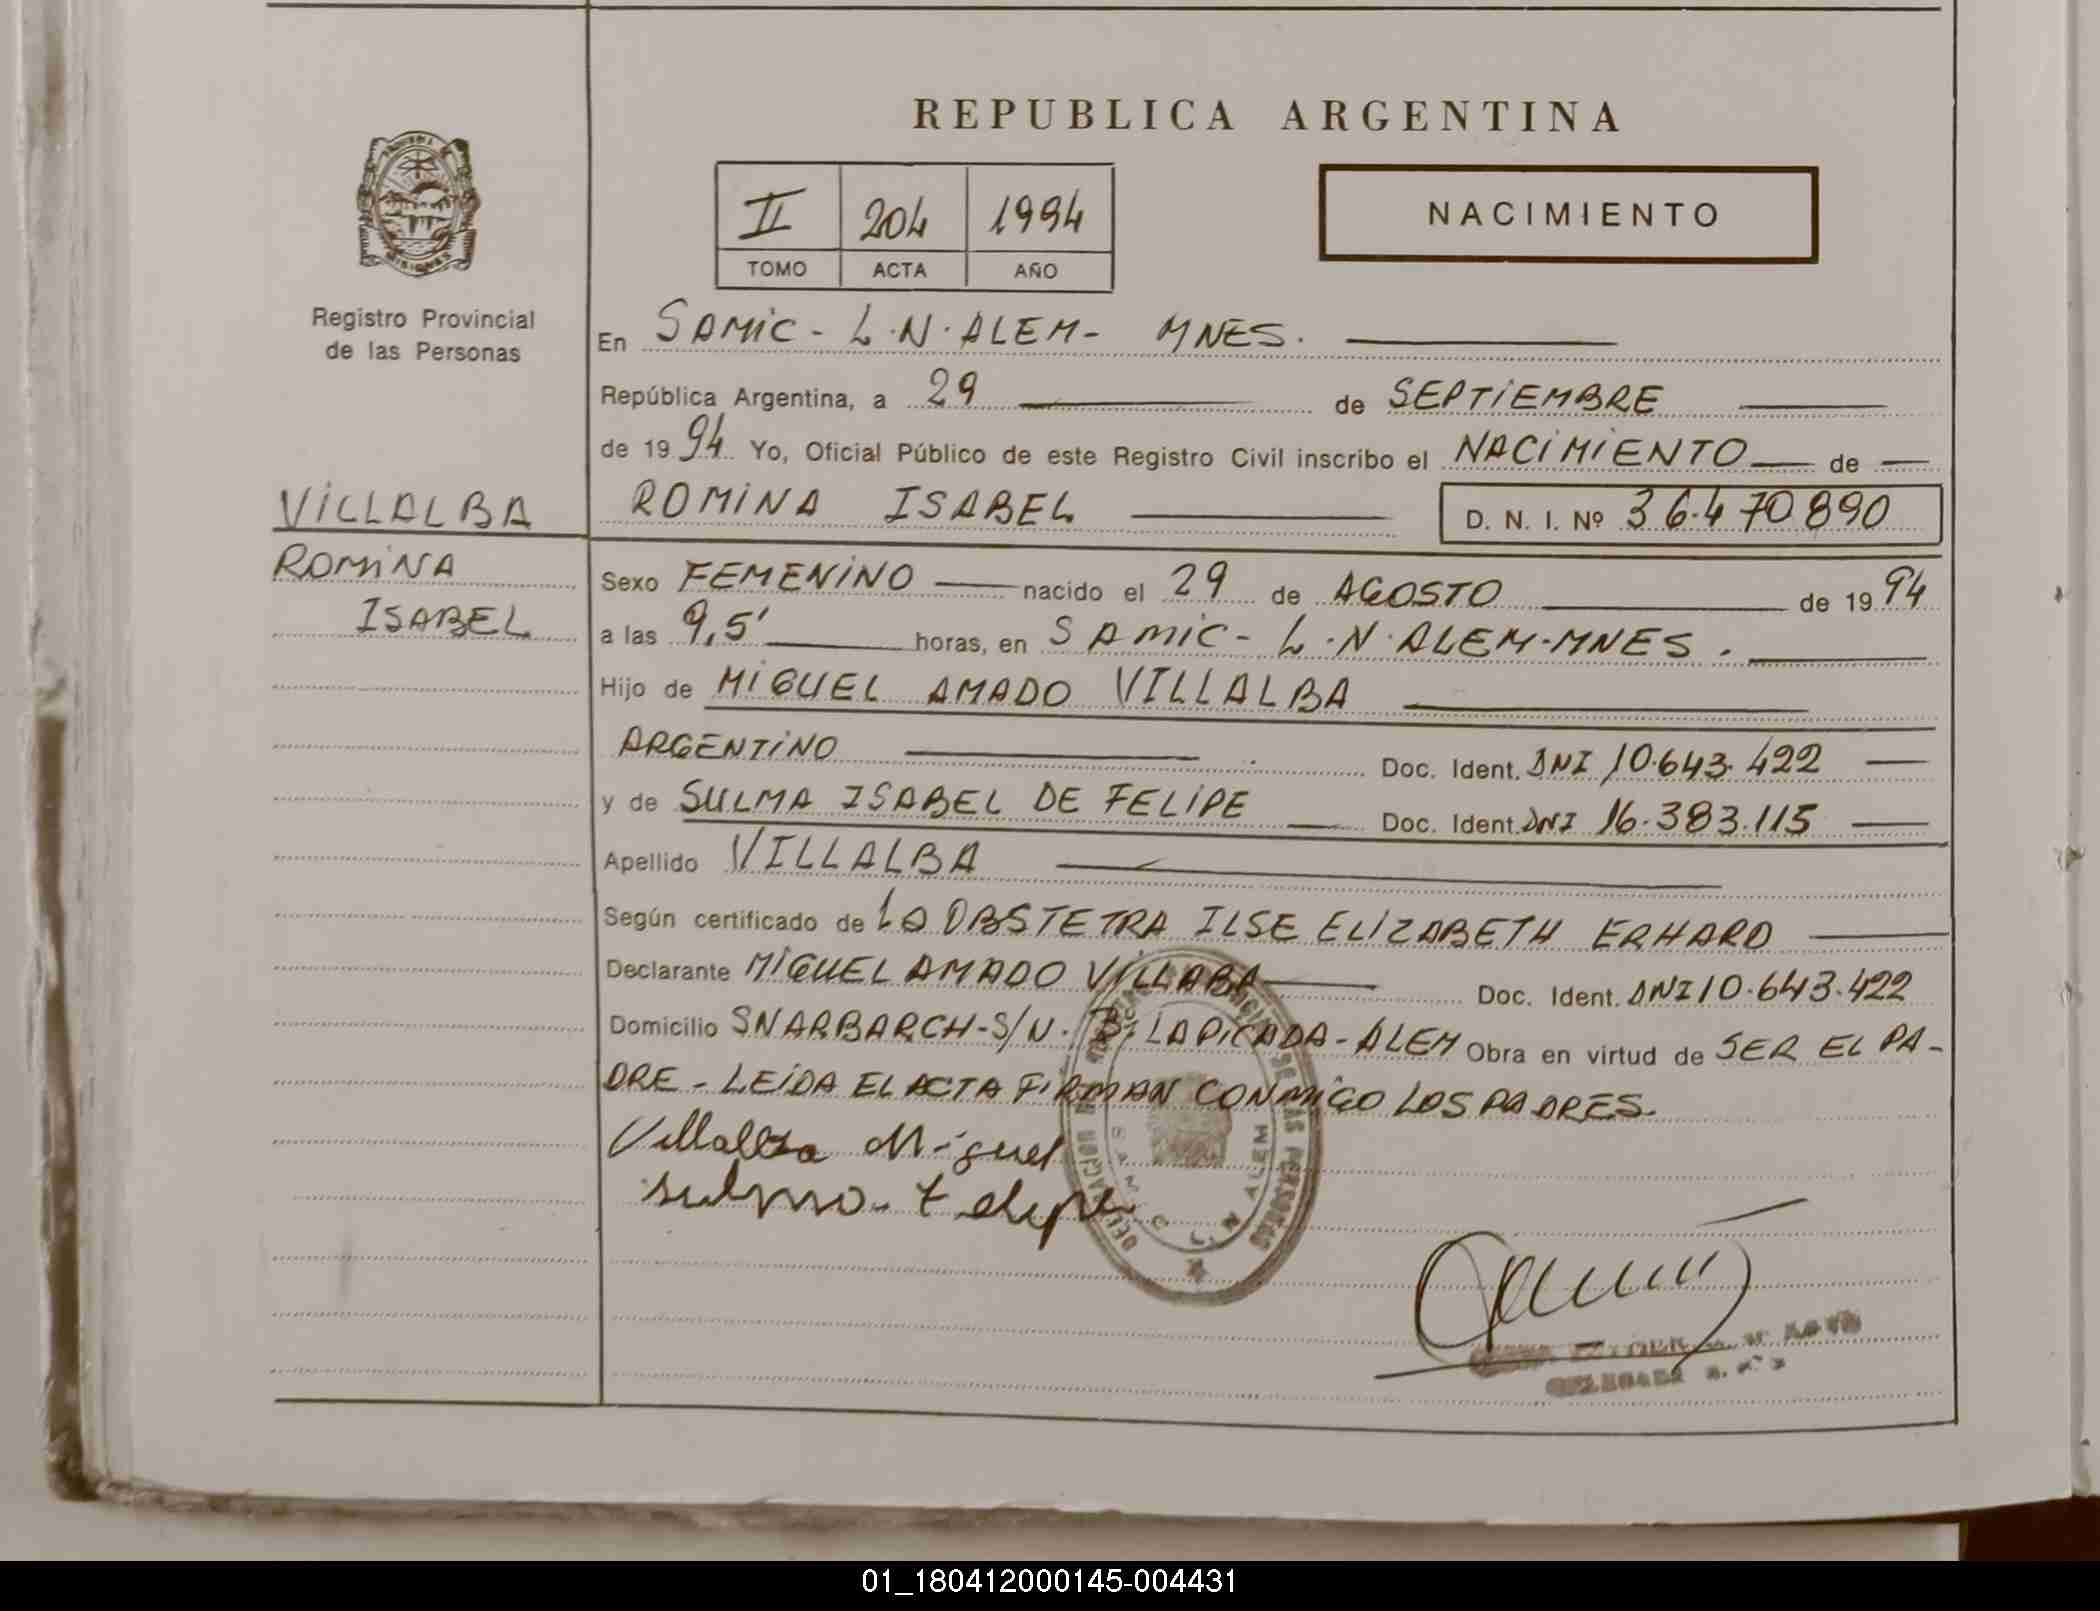 REPUBLICA ARGENTINA
II 204 1994
TOMO ACTA AÑO
NACIMIENTO
MISIONES
Registro Provincial
de las Personas
En SAMIC - L.N. ALEM - MNES.
República Argentina, a 29 de SEPTIEMBRE
de 1994 Yo, Oficial Público de este Registro Civil inscribo el NACIMIENTO de
VILLALBA
ROMINA ISABEL
D. N. I. Nº 36.470890
ROMINA
ISABEL
Sexo FEMENINO nacido el 29 de AGOSTO de 1994
a las 9,5' horas, en SAMIC - L.N. ALEM - MNES.
Hijo de MIGUEL AMADO VILLALBA
ARGENTINO Doc. Ident. DNI 10.643.422
y de SULMA ISABEL DE FELIPE Doc. Ident. DNI 16.383.115
Apellido VILLALBA
Según certificado de LA OBSTETRA ILSE ELIZABETH ERHARD
Declarante MIGUEL AMADO VILLABA Doc. Ident. DNI 10.643.422
Domicilio SNARBARCH-S/N. B. LAPICADA - ALEM Obra en virtud de SER EL PA-
DRE - LEIDA EL ACTA FIRMAN CONMIGO LOS PADRES.
Villalba Miguel
DE LAS PERSONAS
SAMIC L. N. ALEM
01_180412000145-004431